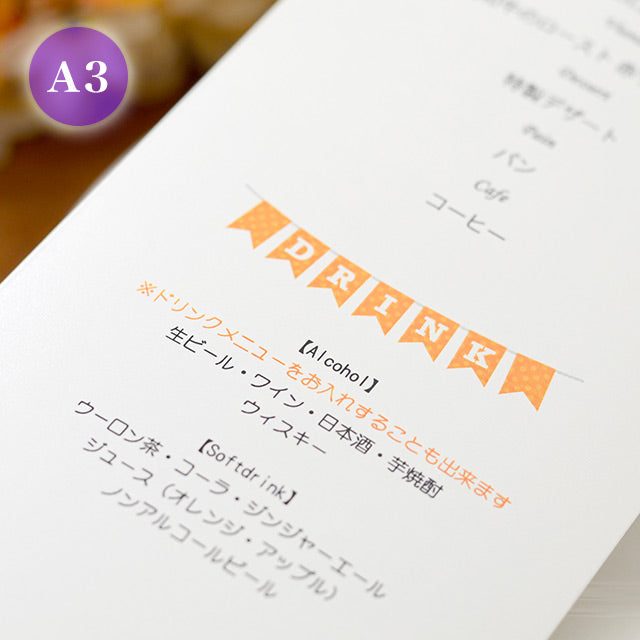 A3
特製デザート
Pain
パン
Cafe
コーヒー
DRINK
※ドリンクメニューをお入れすることも出来ます
【Alcohol】
生ビール・ワイン・日本酒・芋焼酎
ウィスキー
【Softdrink】
ウーロン茶・コーラ・ジンジャーエール
ジュース（オレンジ・アップル）
ノンアルコールビール